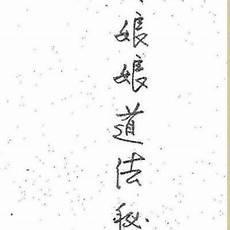 娘娘道法秘